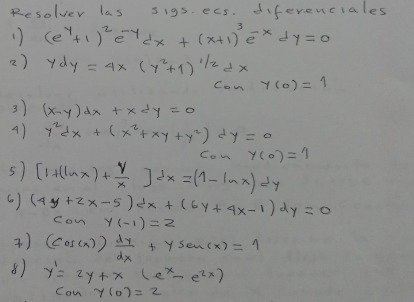 Resolver las sigs. ecs. diferenciales
1) (e^y+1)^2 e^-y dx + (x+1)^3 e^-x dy = 0
2) y dy = 4x (y^2+1)^1/2 dx
Con y(0) = 1
3) (x-y) dx + x dy = 0
4) y^2 dx + (x^2+xy+y^2) dy = 0
Con y(0) = 1
5) [1+(ln x) + y/x ] dx = (1 - ln x) dy
6) (4y + 2x - 5) dx + (6y + 4x - 1) dy = 0
Con y(-1) = 2
7) (Cos(x)) dy/dx + y sen(x) = 1
8) y' = 2y + x (e^x - e^2x)
Con y(0) = 2